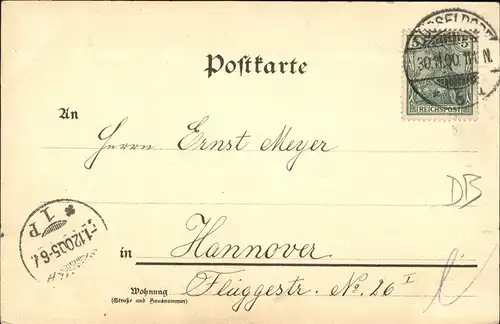 DÜSSELDORF
30.11.00
5
REICHSPOST
Postkarte
An
Herrn Ernst Meyer
DB
1 P
1.12.00.5-6
in Hannover
Wohnung
(Straße und Hausnummer)
Flüggestr. No. 26 I